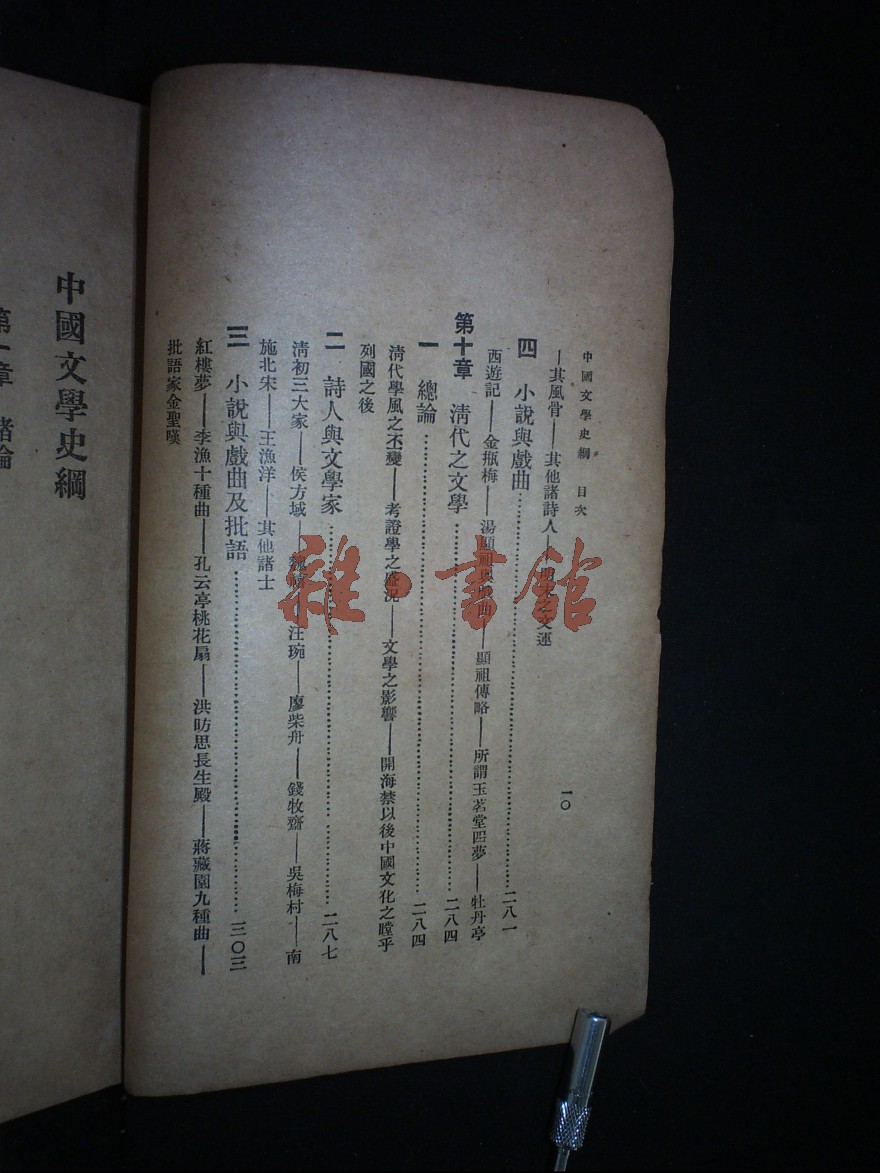 中國文學史綱 目次
一〇
——其風骨——其他諸詩人——明末之文運
四 小說與戲曲……二八一
西遊記——金瓶梅——湯顯祖與戲曲——顯祖傳略——所謂玉茗堂四夢——牡丹亭
第十章 清代之文學……二八四
一 總論……二八四
清代學風之丕變——考證學之盛況——文學之影響——開海禁以後中國文化之瞠乎
列國之後
二 詩人與文學家……二八七
清初三大家——侯方域——魏禧——汪琬——廖柴舟——錢牧齋——吳梅村——南
施北宋——王漁洋——其他諸士
三 小說與戲曲及批語……三〇三
紅樓夢——李漁十種曲——孔云亭桃花扇——洪昉思長生殿——蔣藏園九種曲——
批語家金聖嘆
中國文學史綱
第一章 緒論
雜·書館